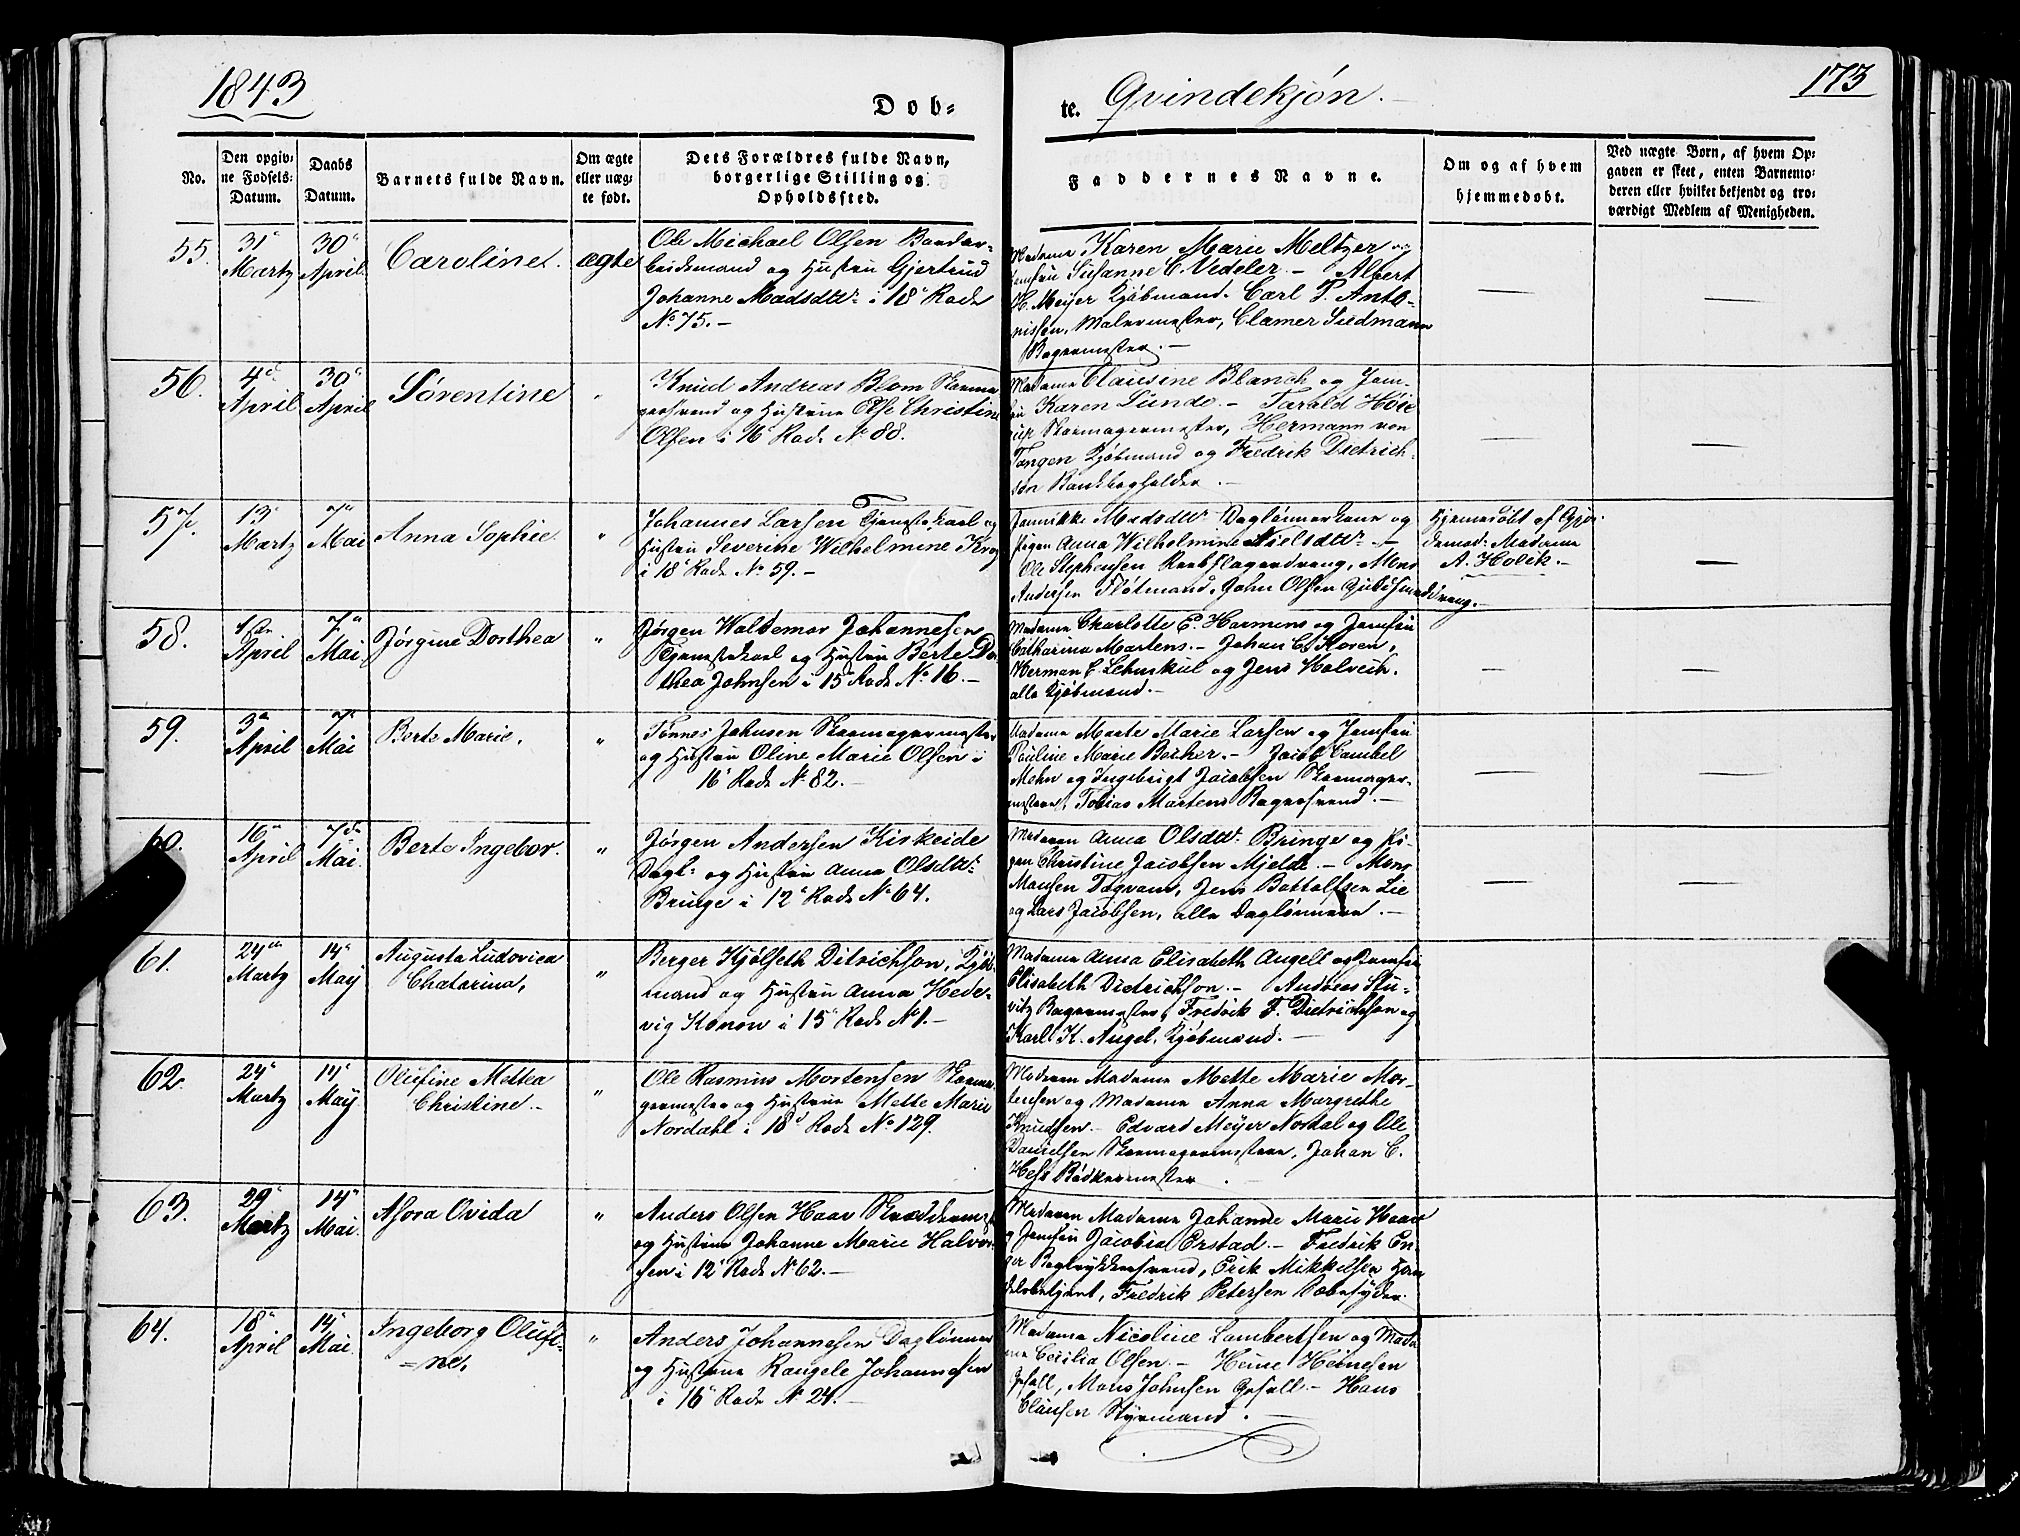 1843
Døb=
te. Qvindekjøn.
173
No.
Den opgiv=
ne Fødsels=
Datum.
Daabs
Datum.
Barnets fulde Navn.
Om ægte
eller uæg=
te født.
Dets Forældres fulde Navn,
borgerlige Stilling og
Opholdssted.
Faddernes Navne.
Om og af hvem
hjemmedøbt.
Ved uægte Børn, af hvem Op=
gaven er skeet, enten Barnemo=
deren eller hvilket bekjendt og tro=
værdigt Medlem af Menigheden.
55.
31
Martz
30
April
Caroline
ægte
Ole Michael Olsen
og Hustru Gjertrud
Johanne Madsdtr i 18 Rode
No 75.—
Madame Karen Marie Meltzer og
Jomfru Susanne C. Vedeler.— Albert
H. Meÿer Kjøbmand. Carl P. Anto-
nissen, Malermester, Clamer Sudmann
Bagermester.—
56.
4
April
30
April
Sørentine
"
Knud Andreas Blom Skoma
gersvend og Hustrue Else Christine
Olsen i 16 Rode No 88.
Madame Clausine Blanch og Jom-
fru Karen Lunde.— Tarald Høie
Skomagermester, Hermann von
Tangen Kjøbmand og Fredrik Dietrich-
son Bankbogholder.—
57.
13
Martz
7
Mai
Anna Sophie
"
Johannes Larsen Tjenestekarl og
Hustru Severine Wilhelmine Krog
i 18 Rode No 59.—
Madsdtr Daglønnerkone og
Pigen Anna Wilhelmine Nielsdtr.—
Ole Stephensen Rebslagerdreng, Mons
Andersen Fløtmand, John Olsen
Hjemmedøbt af Gjor-
demod: Madame
A. Holck.—
58.
April
7
Mai
Jørgine Dorthea
"
Jørgen Waldemar Johannesen
Tjenestekarl og Hustru Berte Do
thea Johnsen i 15 Rode No 16.—
Madame Charlotte E. Harmens og Jomfru
Catharina Martens.— Johan C. Koren,
Herman E. Lehmkul og Jens Holvich.
alle Kjøbmænd.—
59.
3
April
7
Mai
Berte Marie.
"
Tønnes Johnsen Skomagermester
og Hustru Oline Marie Olsen i
16 Rode No 82.—
Madame Marte Marie Larsen og Jomfru
Pauline Marie Becher.— Jacob
Mohn og Ingebrigt Jacobsen Skomager-
mestere, Tobias Martens Bagersvend.—
60.
16
April
7de
Mai.
Berte Ingebor.
"
Jørgen Andersen Kirkeide
Dagl: og Hustru Anna Olsdtr
Bringe i 12 Rode No 64.
Moderen Anna Olsdtr Bringe og Pi-
gen Christine Jacobsen Mjelde.— Mons
Monsen Tagvam, Jens Bottolfsen Lie
og Lars Jacobsen, alle Daglønnere.—
61.
24
Martz
14
Maÿ
Augusta Ludovica
Chatarina,
"
Berger Kjølseth Ditrichson, Kjøb
mand og Hustru Anna Hede-
vig Konow i 15 Rode No 1.—
Madame Anna Elisabeth Angell og Jomfru
Elisabeth Dietrichson.— Andreas Stu-
vitz Bagermester, Fredrik F. Dietrichson og
Karl K. Angel, Kjøbmænd.—
62.
24
Martz
14
Maÿ
Olufine Mettea
Christine.—
"
Ole Rasmus Mortensen Skoma
germester og Hustrue Mette Marie
Nordahl i 18 Rode No 129.
Moderen Madame Mette Marie Mor-
tensen og Madame Anna Margrethe
Knudsen.— Edvard Meÿer Nordal og Ole
Danielsen Skomagermestere, Johan C.
Hess Bødkermester.
63.
29
Martz
14
Mai
Asora Ovida
"
Anders Olsen Haav Skræddermest
og Hustrue Johanne Marie Halvor
sen i 12 Rode No 62.—
Moderen Madame Johanne Marie Haav
og Jomfru Jacobia Erstad.— Fredrik
Bogtrykkersvend, Erik Mikkelsen
Fredrik Petersen Sæbesÿder.
64.
18
April
14
Mai.
Ingeborg Olufi=
=ne,
"
Anders Johannesen Daglønner
og Hustrue Rangele Johannesen
i 16 Rode No 24.—
Madame Nicoline Lambertsen og Mada
me Cecilia Olsen.— Heine Heinesen
Gesell, Mons Johnsen Gesell.— Hans
Clausen Styrmand.—